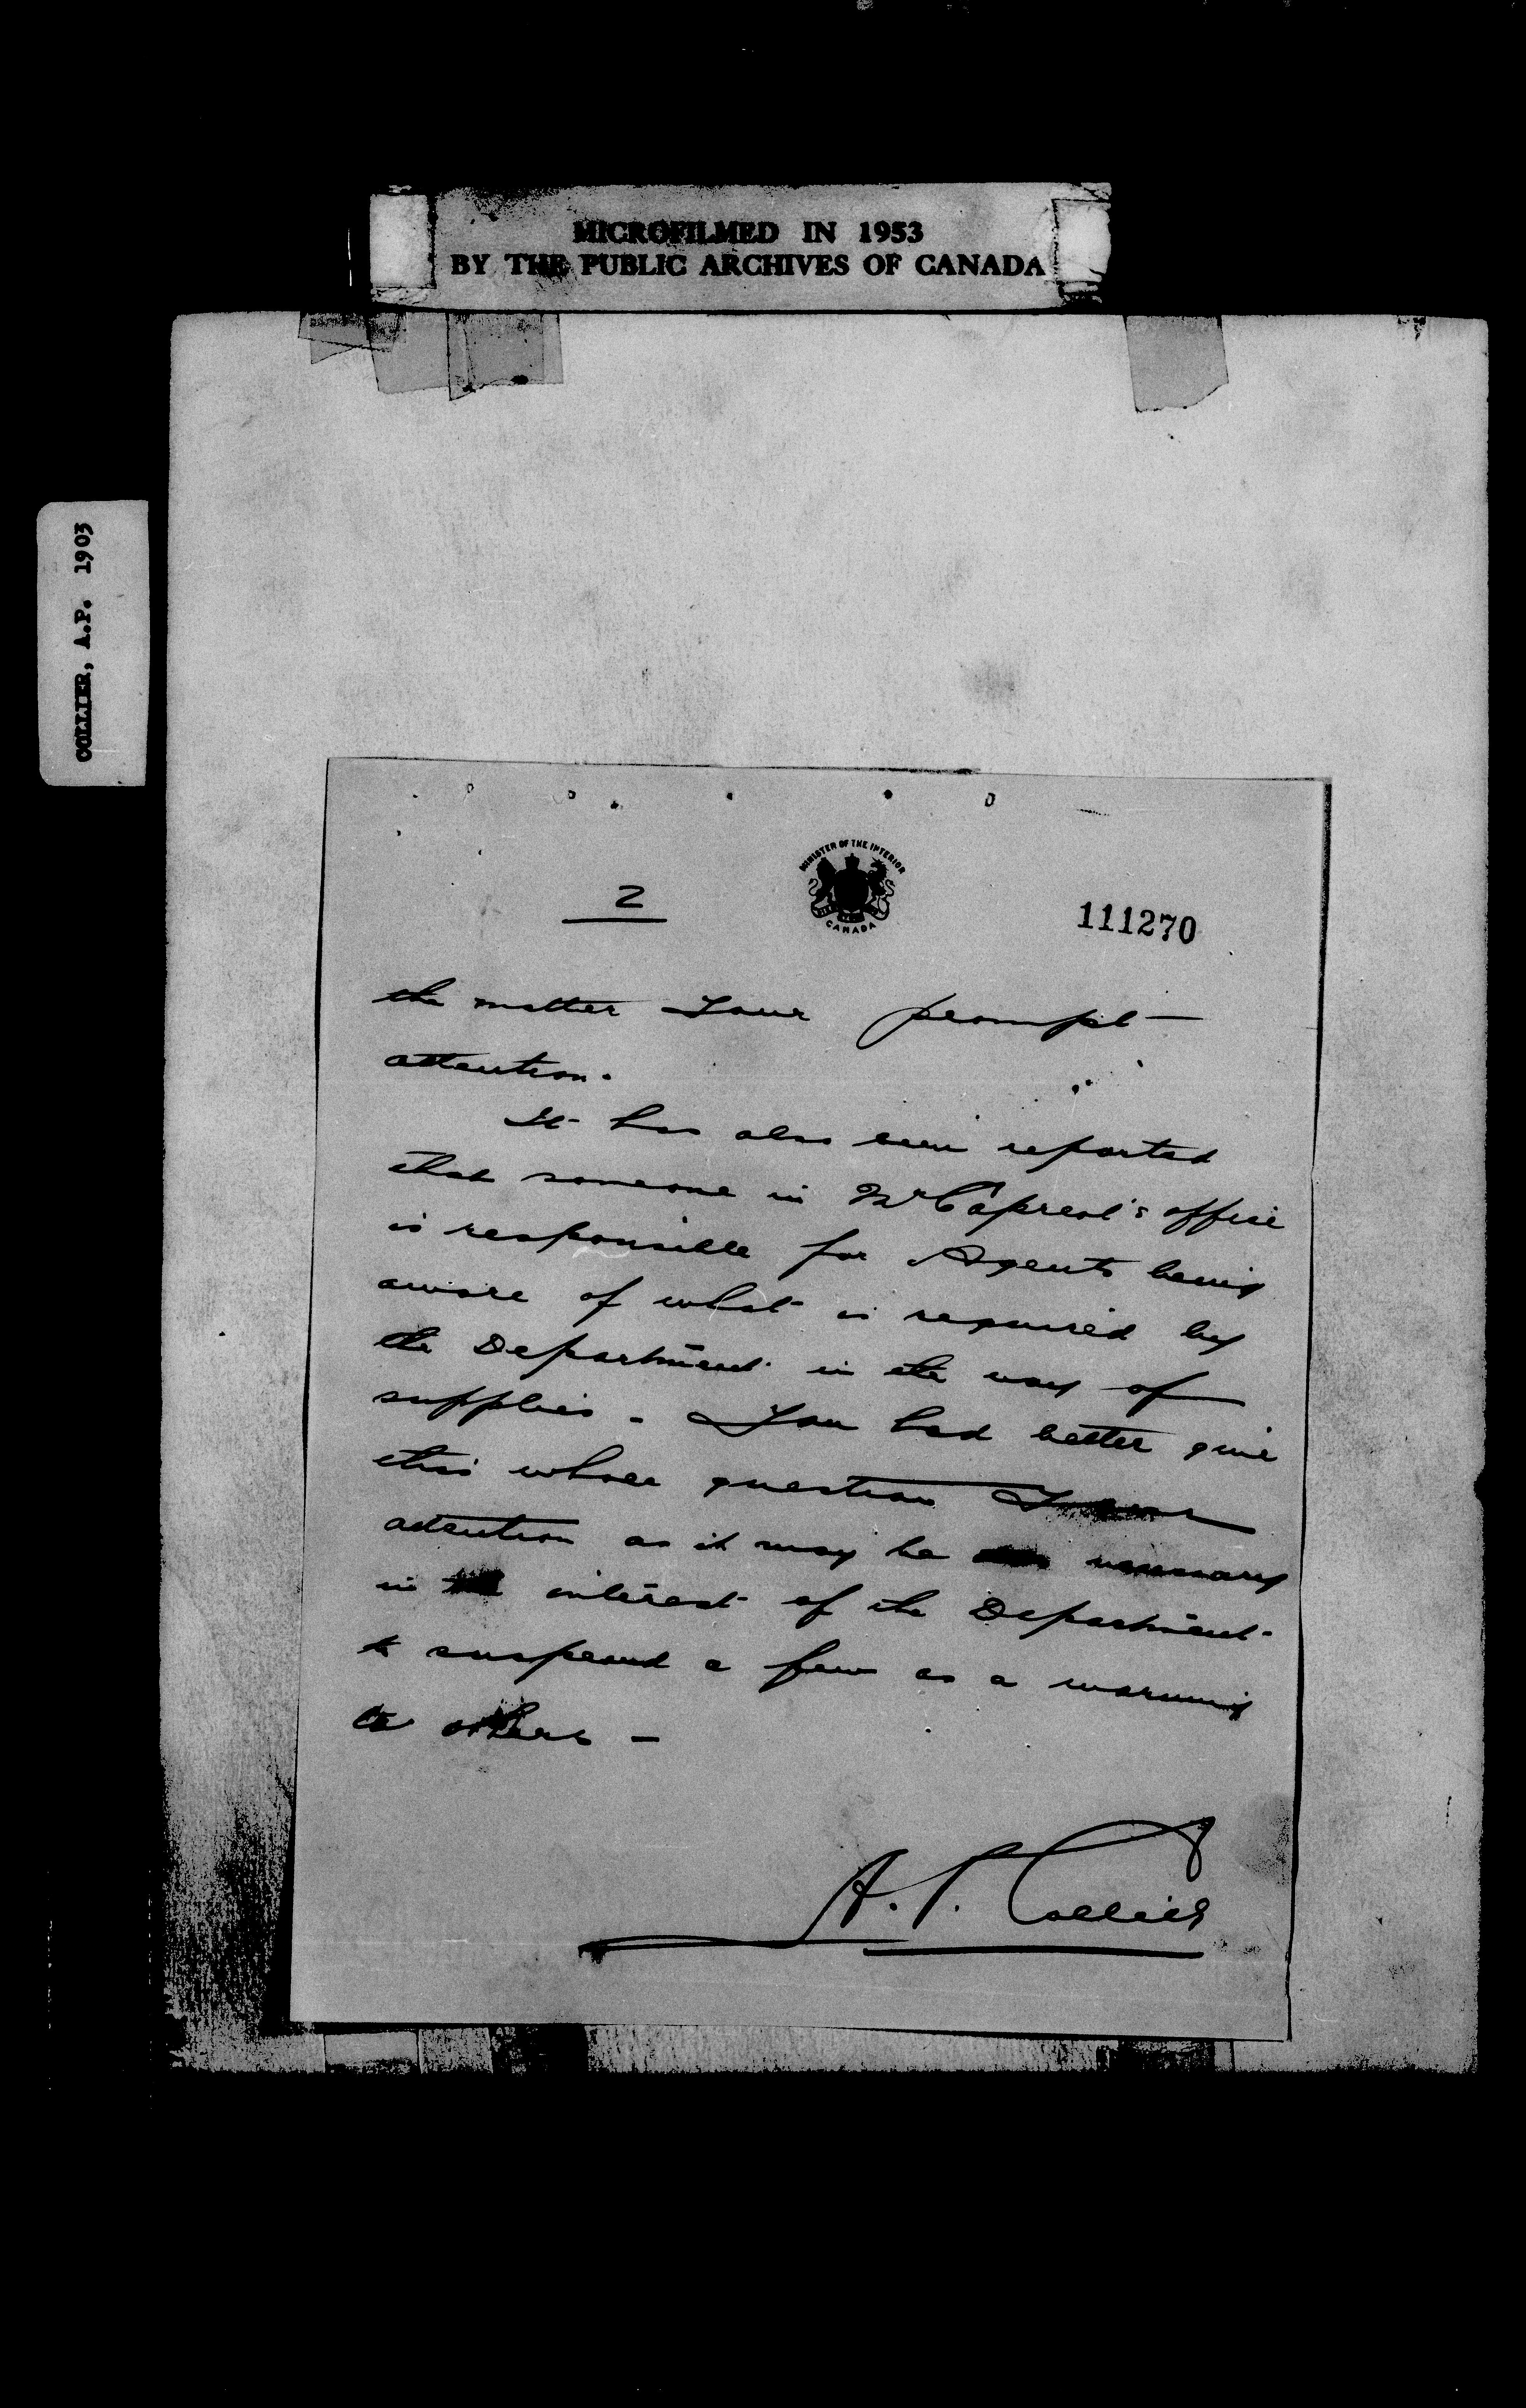 MICROFILMED IN 1953
BY THE PUBLIC ARCHIVES OF CANADA
COLLIER, A.P. 1903
MINISTER OF THE INTERIOR
CANADA
2
111270
the matter Your prompt
attention.
It has also been reported
that someone in Mr Capreol's office
is responsible for Agents being
aware of what is required by
the Department in the way of
supplies. You had better give
this whole question Your
attention as it may be necessary
in the interest of the Department
to suspend a few as a warning
to others -
A. P. Collier